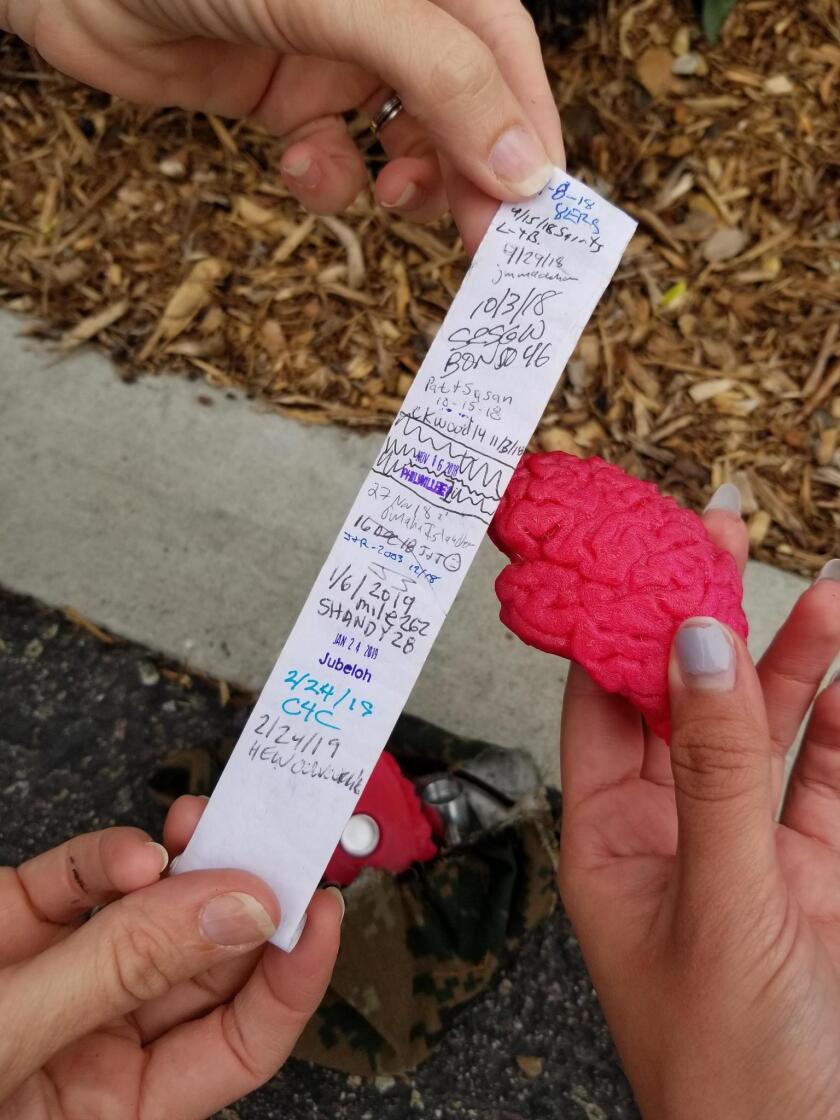 -8-18
8ERS
9/15/18 Saints
L-YB.
9/29/18
10/3/18
BONSO46
Pat + Susan
10-15-18
11/3/18
NOV 16 2018
PHILNVILLHE
27 Nov 18
OmahaIslander
16 DEC 18 JJT
J+R-2003 12/18
1/6/2019
mile262
SHANDY28
JAN 24 2019
Jubeloh
2/24/19
C4C
2/24/19